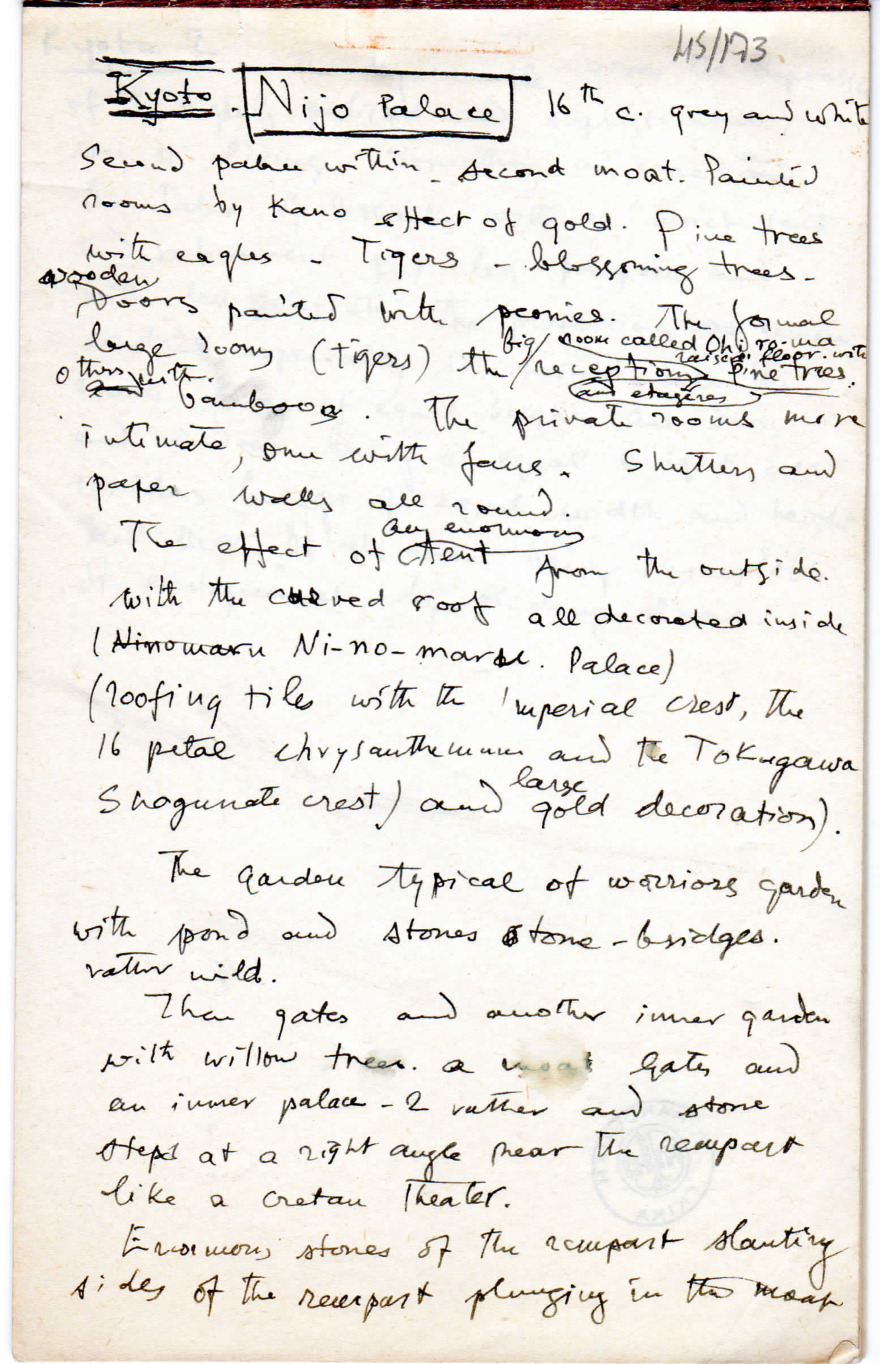 45/173
Kyoto. Nijo Palace 16th c. grey and white
Second palace within second moat. Painted
rooms by Kano effect of gold. Pine trees
with eagles - Tigers - blossoming trees -
wooden
Doors painted with peonies. The formal
big/ room called Ohiro-ma
large rooms (tigers) the/reception, pine trees.
raised floor. with
and etagères
others with.
bamboos. The private rooms more
intimate, one with fans. Shutters and
paper walls all round.
enormous
The effect of tent from the outside.
with the curved roof all decorated inside
(Ninomaru Ni-no-maru. Palace)
(roofing tiles with the imperial crest, the
16 petal chrysanthemum and the Tokugawa
large
Shogunate crest) and gold decoration).
The garden typical of worriors garden
with pond and stones stone-bridges.
rather wild.
Then gates and another inner garden
with willow trees. a moat gates and
an inner palace - 2 rather and stone
steps at a right angle near the rempart
like a cretan Theater.
Enormous stones of the rempart slanting
sides of the rempart plunging in the moat